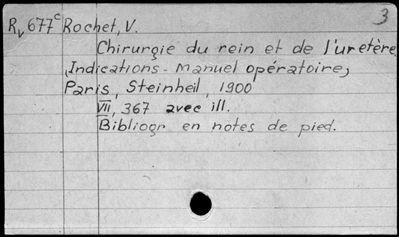 3
Rv677c Rochet, V.
Chirurgie du rein et de l'uretère
(Indications - Manuel opératoire)
Paris, Steinheil, 1900
VII, 367 avec ill.
Bibliogr en notes de pied.